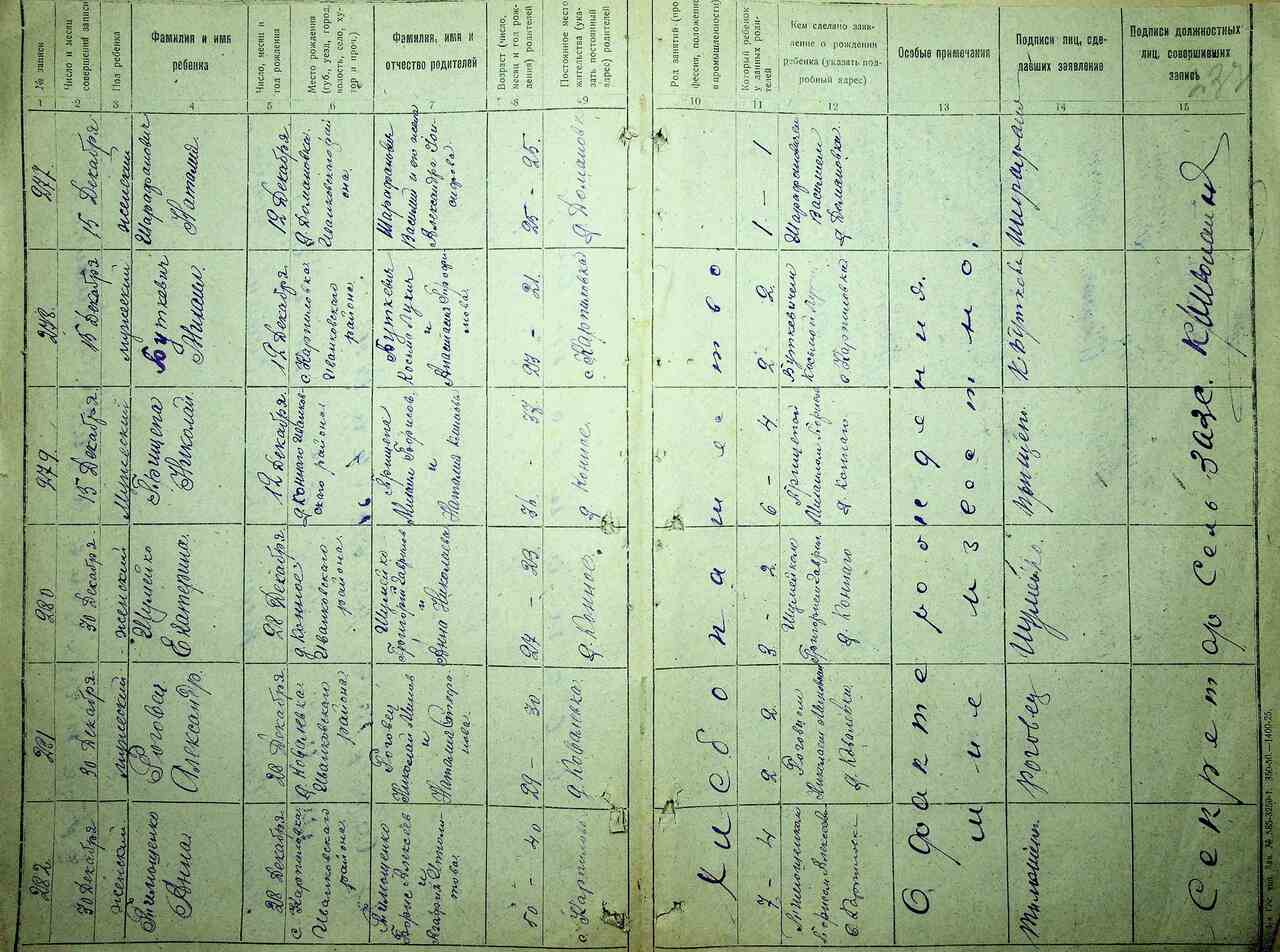 № записи
Число и месяц
совершения записи
Пол ребенка
Фамилия и имя
ребенка
Число, месяц и
год рождения
Место рождения
(губ., уезд, город,
волость, село, ху-
тор и проч.)
Фамилия, имя и
отчество родителей
Возраст (число,
месяц и год рож-
дения) родителей
Постоянное место
жительства (ука-
зать постоянный
адрес) родителей
Род занятий (про-
фессия, положение
в промышленности)
Который ребенок
у данных роди-
телей
Кем сделано заяв-
ление о рождении
ребенка (указать под-
робный адрес)
Особые примечания
Подписи лиц, сде-
лавших заявление
Подписи должностных
лиц, совершивших
запись
1 2 3 4 5 6 7 8 9 10 11 12 13 14 15
277
15 Декабря
женский
Шарафанович
Наталия.
12 Декабря.
д. Домановка.
Иванковского рай
она.
Шарафанович
Василий и его жена
Александра
25 - 25.
д. Домановка
1 - 1
Шарафановичем
Василием
д. Домановка.
278.
15 Декабря
мужеский
Буткевич
Михаил.
12 Декабря.
с. Карпиловка.
Иванковского
района.
Буткевич
Косьма Лукич
и
Анастасия
27 - 21.
с. Карпиловка
2 - 2
Буткевичем
Косьмой
с. Карпиловка
К Буткови
279.
15 Декабря
Мужеский
Прищепа
Николай
12 Декабря.
д. Конного Иванков-
ского района
Прищепа
Михаил Борисов.
и
Наталия
36 - 37
д. Конное.
6 - 4
Прищепой
Михаилом Борисов
д. Конного
Прищеп.
280
30 Декабря
женский
Шулейко
Екатерина.
28 Декабря.
д. Конное.
Иванковского
района.
Шулейко
Григорий Гаврилов
и
Анна Николаевна
27 - 23.
д. Конное.
3 - 2
Шулейкою
Григорием Гаврил.
д. Конного
Шулейко.
281
30 Декабря.
Мужеский
Роговец
Александр.
28 Декабря
д. Коваловка.
Иванковского
района.
Роговец
Николай
и
Наталия
29 - 30
д. Коваловка.
2 - 2
Роговцем
Николаем
д. Коваловки
роговец
282.
30 Декабря
женский
Тимошенко
Анна.
28 Декабря
с. Карпиловка.
Иванковского
района.
Тимошенко
Борис Алексеев
и
Агафия
50 - 40
с. Карпиловка
7 - 4
Тимошенком
Борисом Алексеев
Тимошен.
Хлебопашество
О факте рождения
мне известно.
Секретар Сель ЗАГС.